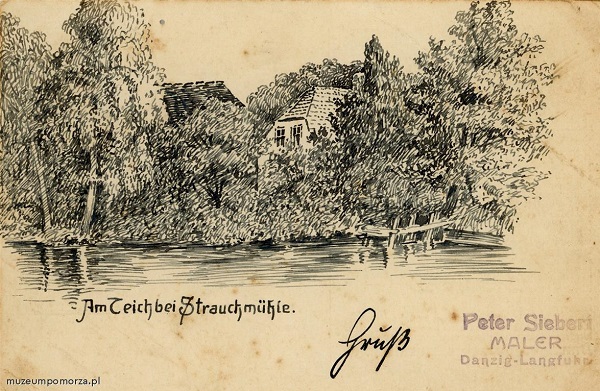 Am Teich bei Strauchmühle.
Gruß
Peter Siebert
MALER
Danzig-Langfuhr
muzeumpomorza.pl